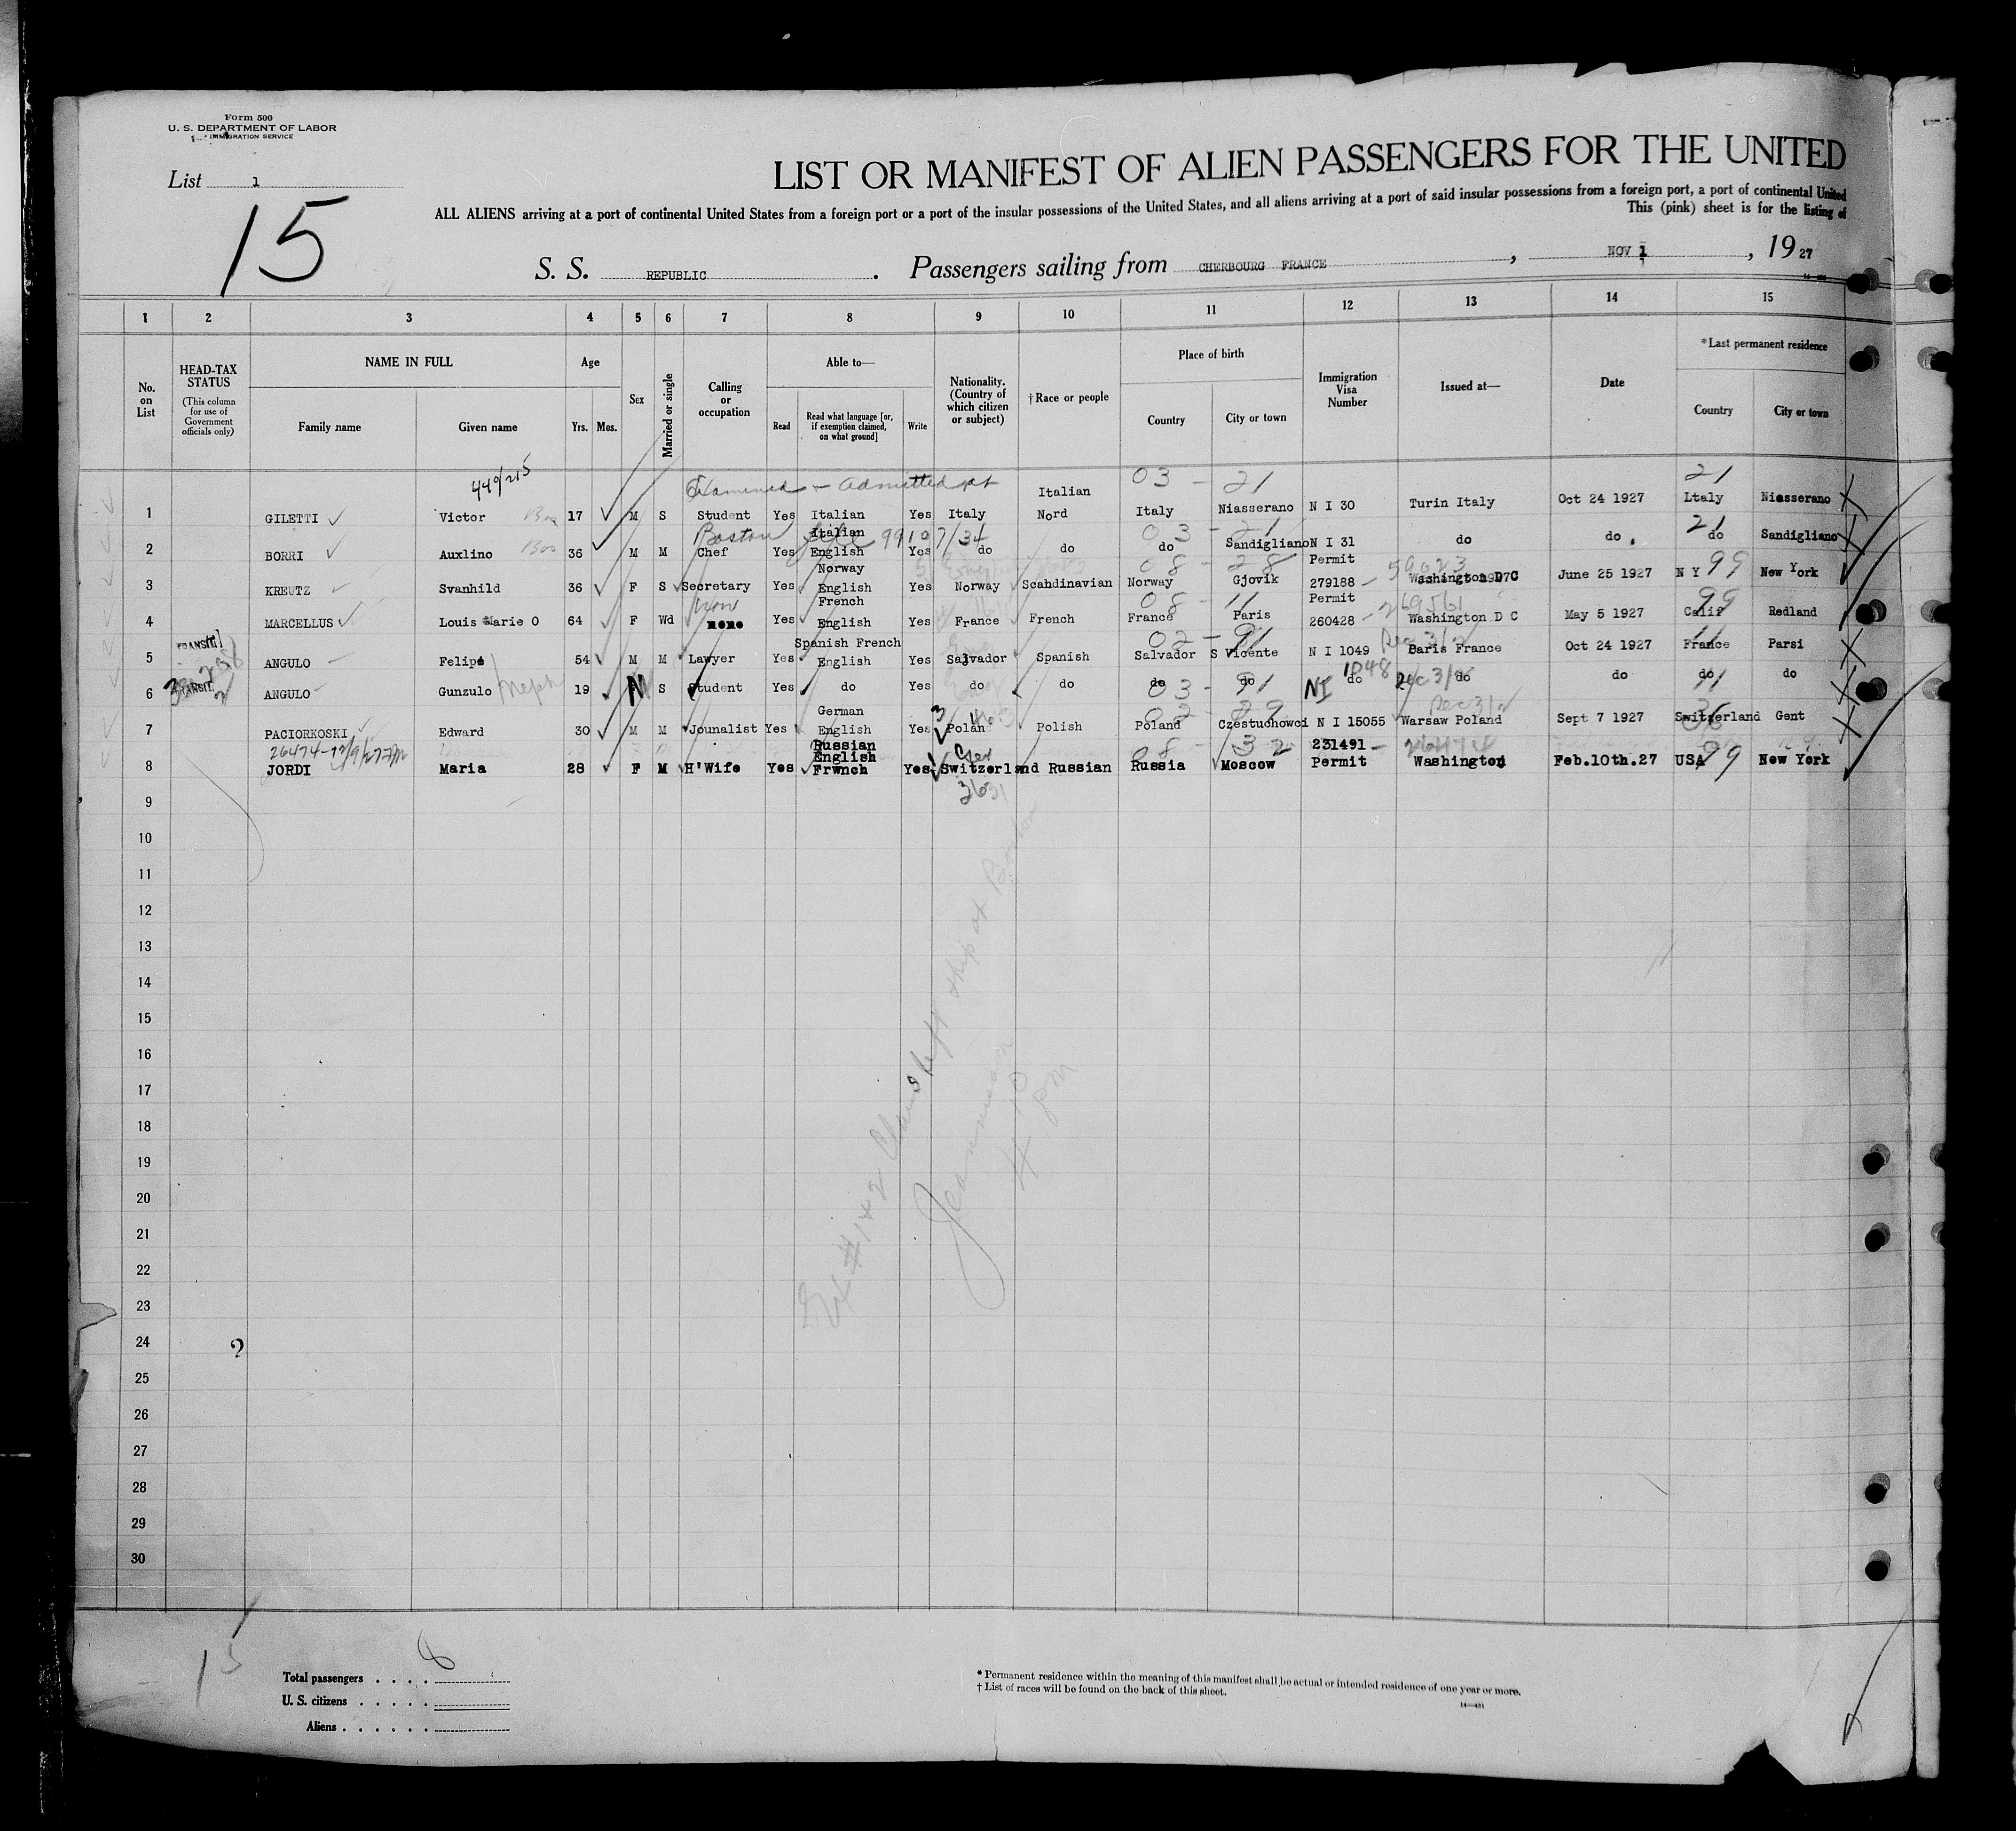 Form 500
U. S. DEPARTMENT OF LABOR
IMMIGRATION SERVICE
List 1
15
LIST OR MANIFEST OF ALIEN PASSENGERS FOR THE UNITED
ALL ALIENS arriving at a port of continental United States from a foreign port or a port of the insular possessions of the United States, and all aliens arriving at a port of said insular possessions from a foreign port, a port of continental United
This (pink) sheet is for the listing of
S. S. REPUBLIC. Passengers sailing from CHERBOURG FRANCE, NOV 1, 19 27
1 2 3 4 5 6 7 8 9 10 11 12 13 14 15
No. on List
HEAD-TAX STATUS
(This column for use of Government officials only)
NAME IN FULL
Family name
Given name
Age
Yrs. Mos.
Sex
Married or single
Calling or occupation
Able to—
Read
Read what language [or, if exemption claimed, on what ground]
Write
Nationality. (Country of which citizen or subject)
†Race or people
Place of birth
Country
City or town
Immigration Visa Number
Issued at—
Date
*Last permanent residence
Country
City or town
440/215
Examined - admitted at
03 - 21
21
1 GILETTI Victor Bos 17 M S Student Yes Italian Yes Italy Italian Nord Italy Niasserano N I 30 Turin Italy Oct 24 1927 Ltaly Niasserano
Boston file 9910 7/34
03 - 21
21
2 BORRI Auxlino Bos 36 M M Chef Yes Italian English Yes do do do Sandigliano N I 31 do do do Sandigliano
08 - 28
59023
99
3 KREUTZ Svanhild 36 F S Secretary Yes Norway English Yes Norway Scahdinavian Norway Gjovik Permit 279188 Washington D C June 25 1927 N Y New York
non
08 - 11
269561
99
4 MARCELLUS Louis Marie O 64 F Wd none Yes French English Yes France French France Paris Permit 260428 Washington D C May 5 1927 Calif Redland
TRANSIT
02 - 91
Dec 3/2
11
5 ANGULO Felipe 54 M M Lawyer Yes Spanish French English Yes Salvador Spanish Salvador S Vicente N I 1049 Baris France Oct 24 1927 France Parsi
TRANSIT
6 ANGULO Gunzulo Neph 19 M S Student Yes do Yes do do do do NI 1048 do do do do do
03 - 91
11
Dec 3/2
7 PACIORKOSKI Edward 30 M M Jounalist Yes German English Yes Polan Polish Poland Czestuohowci N I 15055 Warsaw Poland Sept 7 1927 Switzerland Gent
02 - 29
36
26474-12/9/27
08 - 32
26474
99
8 JORDI Maria 28 F M H'Wife Yes Russian English Frwnch Yes Switzerland Russian Russia Moscow 231491 Permit Washington Feb.10th.27 USA New York
9
10
11
12
13
14
15
16
17
18
19
20
21
22
23
24 ?
25
26
27
28
29
30
#1+2 left ship at Boston
4 10 pm
15
Total passengers . . . . 8
U. S. citizens . . . . .
Aliens . . . . . .
* Permanent residence within the meaning of this manifest shall be actual or intended residence of one year or more.
† List of races will be found on the back of this sheet.